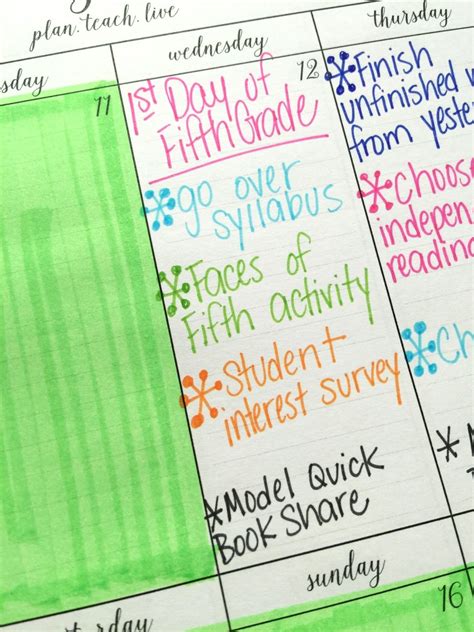 plan.teach.live
sday
wednesday
thursday
11
12
1st Day of
Fifth Grade
go over
syllabus
Faces of
Fifth activity
Student
interest survey
Model Quick
Book Share
Finish
unfinished w
from yeste
Choos
indepen
readin
Ch
M
rday
sunday
16